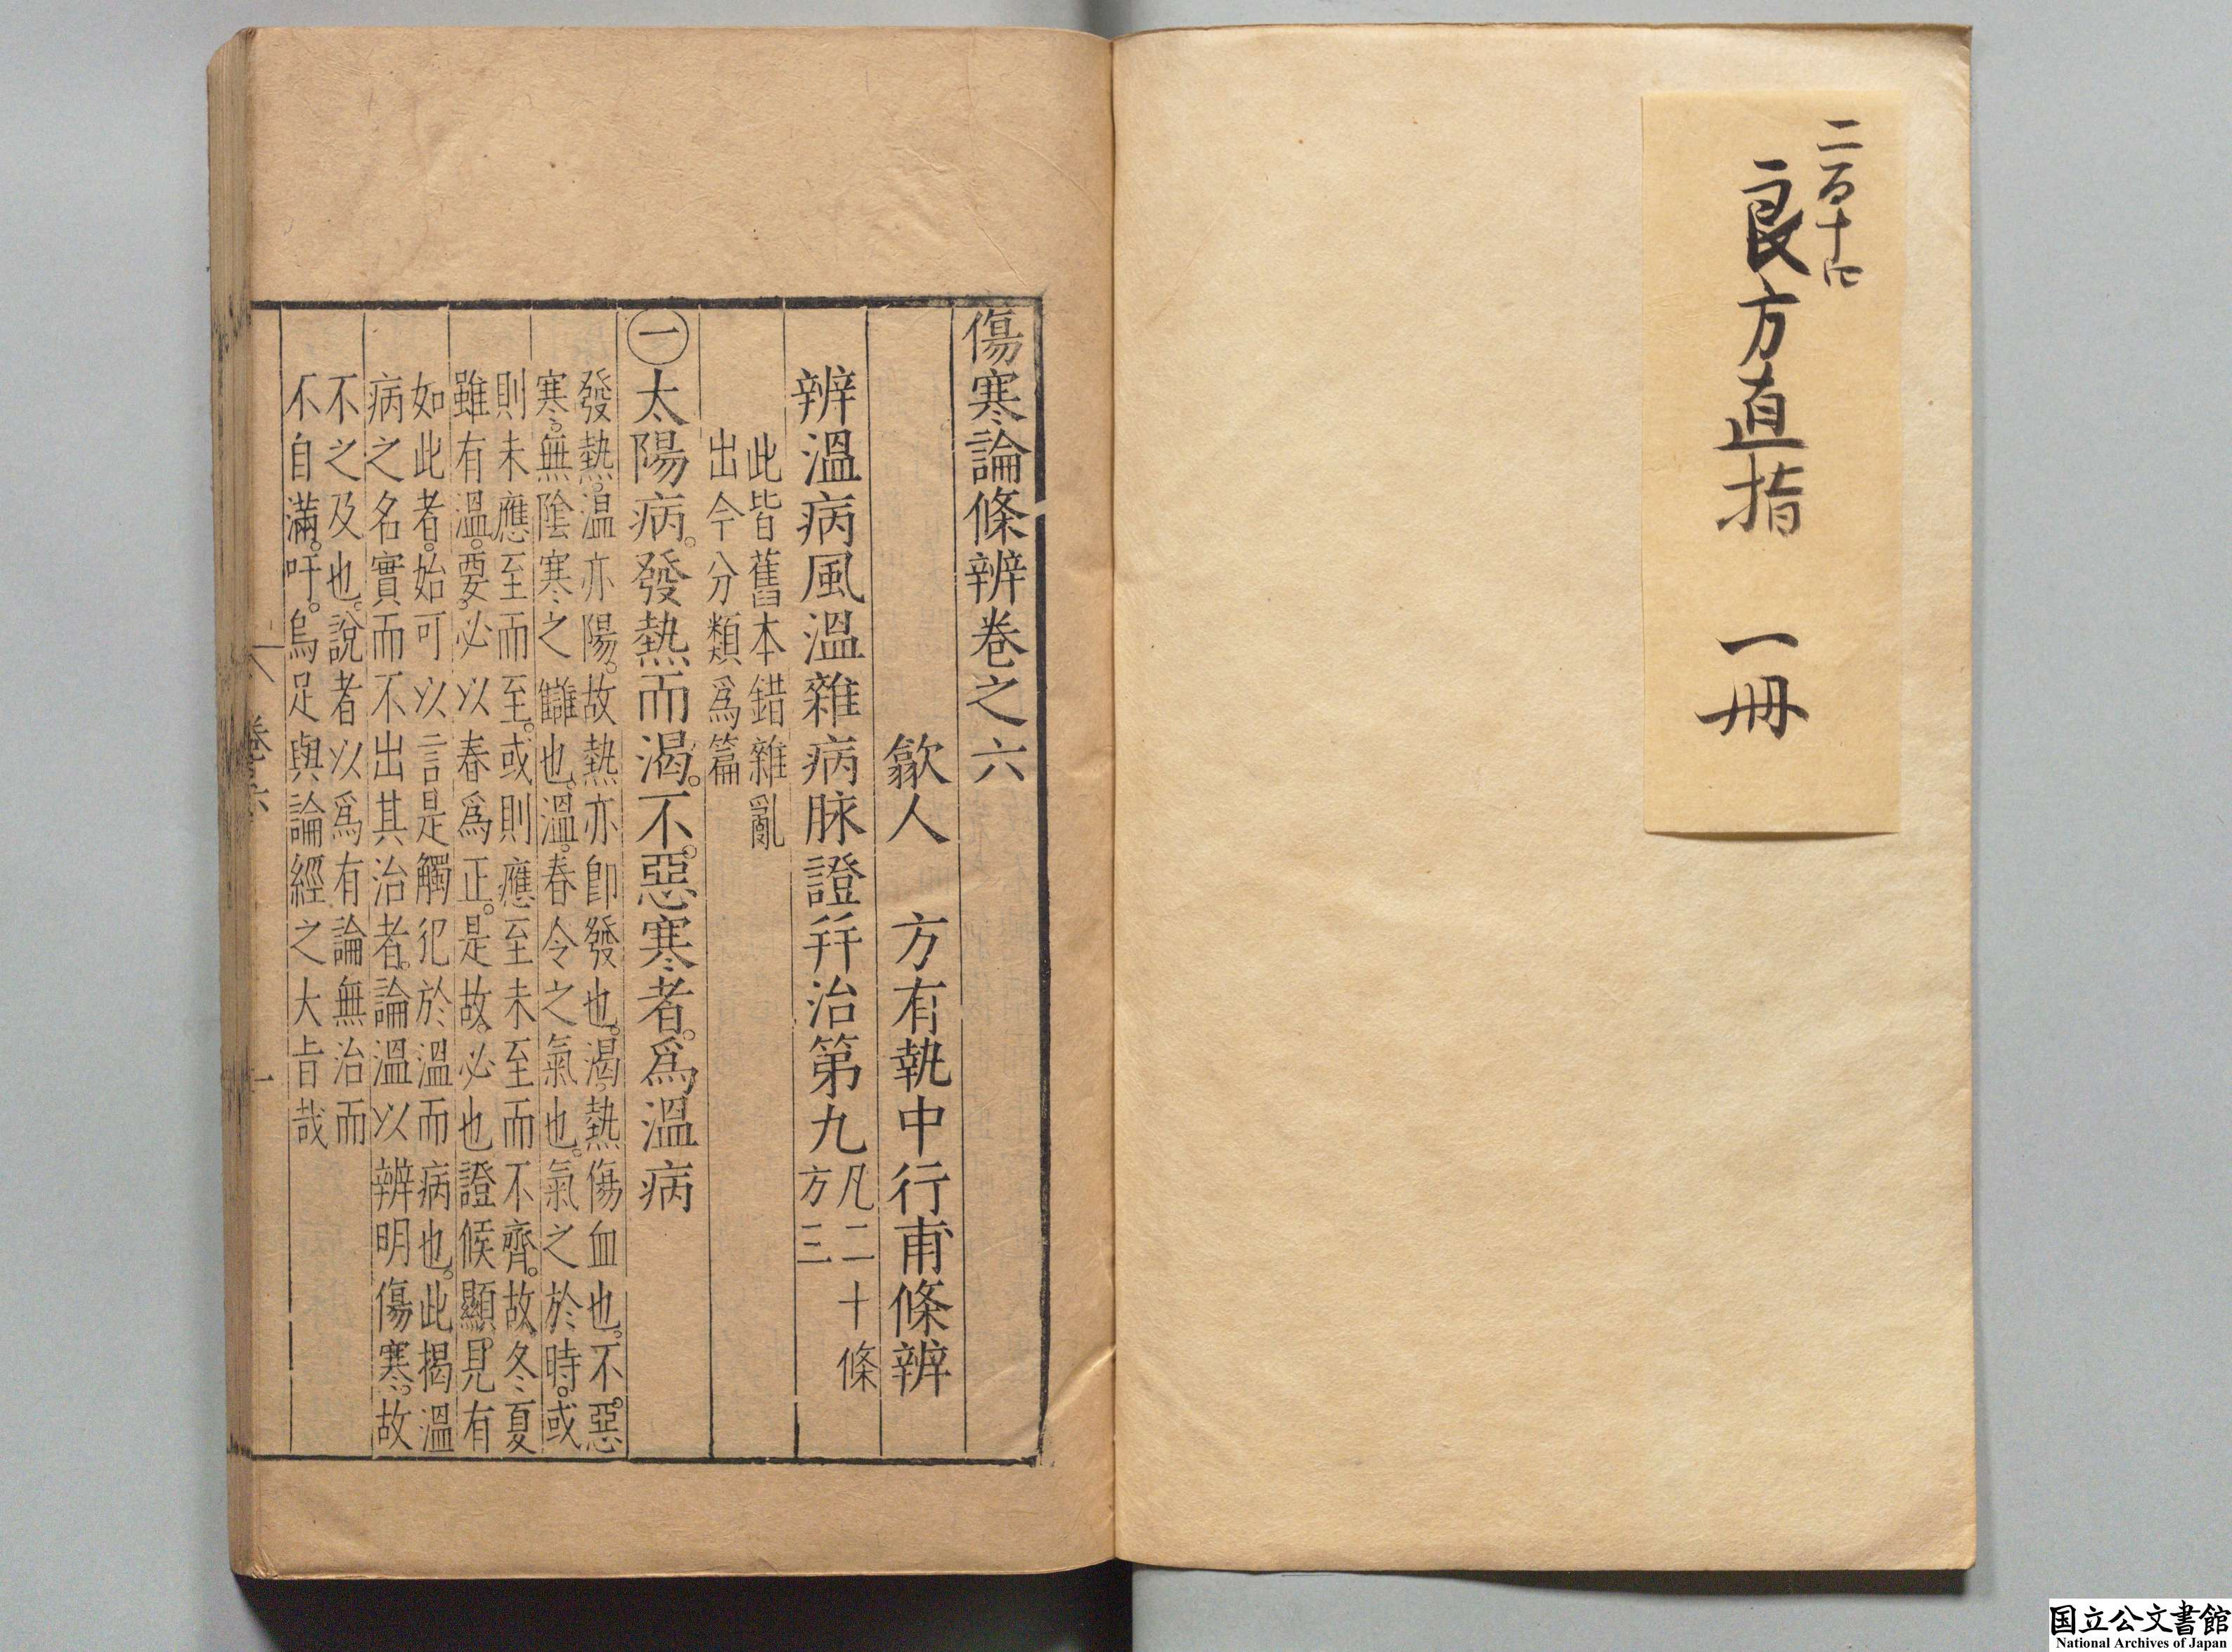 二百十四
良方直指 一冊
傷寒論條辨卷之六
歙人 方有執中行甫條辨
辨溫病風溫雜病脉證幷治第九 凡二十條 方三
此皆舊本錯雜亂
出今分類爲篇
㊀太陽病。發熱而渴。不惡寒者。爲溫病
發熱。温亦陽。故熱亦卽發也。渴。熱傷血也。不。惡
寒。無陰寒之讎也。溫。春令之氣也。氣之於時。或
則未應至而至。或則應至未至而不齊。故冬夏
雖有溫。要。必以春爲正。是故。必也證候顯。見有
如此者。始可以言是觸犯於溫而病也。此揭溫
病之名實而不出其治者。論溫以辨明傷寒。故
不之及也。說者以爲有論無治而
不自滿。吁。烏足與論經之大旨哉
卷六
一
国立公文書館
National Archives of Japan